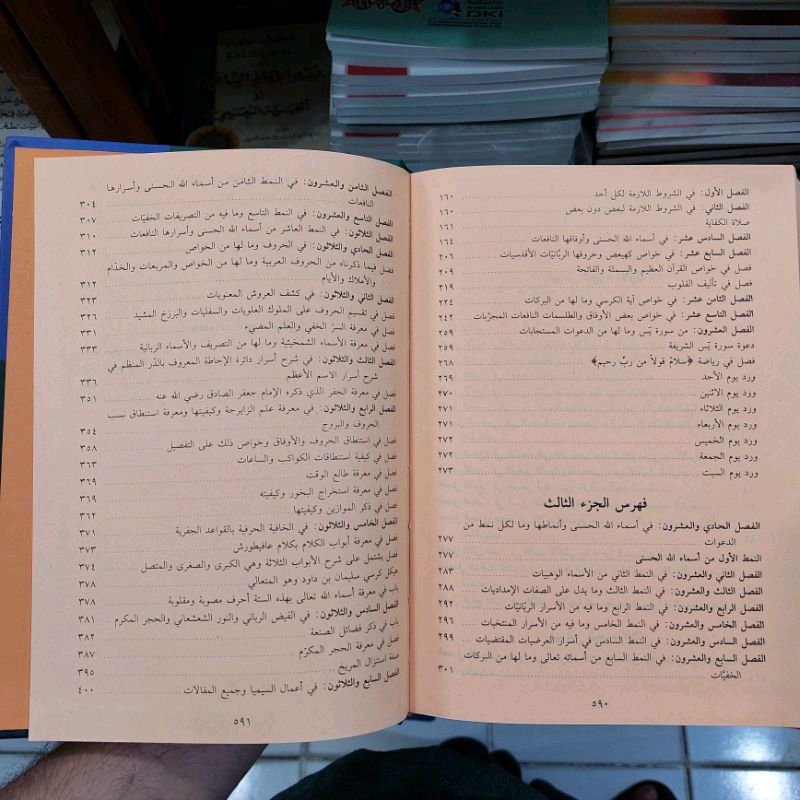 DKI
الفصل الأول: في الشروط اللازمة لكل أحد ١٦٠
الفصل الثاني: في الشروط اللازمة لبعض دون بعض ١٦٠
صلاة الكفاية ١٦١
الفصل السادس عشر: في أسماء الله الحسنى وأوفاقها النافعات ١٦٤
الفصل السابع عشر: في خواص كهيعص وحروفها الربّانيّات الأقدسيات ٢٠٦
فصل في خواص القرآن العظيم والبسملة والفاتحة ٢٠٩
فصل في تأليف القلوب ٢١٩
الفصل الثامن عشر: في خواص آية الكرسي وما لها من البركات ٢٢٤
الفصل التاسع عشر: في خواص بعض الأوفاق والطلسمات النافعات المجرّبات ٢٤٢
الفصل العشرون: من سورة يّس وما لها من الدعوات المستجابات ٢٥٩
دعوة سورة يّس الشريفة ٢٥٩
فصل في رياضة ﴿سلامٌ قولاً من ربٍّ رحيم﴾ ٢٦٨
ورد يوم الأحد ٢٦٩
ورد يوم الاثنين ٢٧٠
ورد يوم الثلاثاء ٢٧١
ورد يوم الأربعاء ٢٧١
ورد يوم الخميس ٢٧٢
ورد يوم الجمعة ٢٧٢
ورد يوم السبت ٢٧٣
فهرس الجزء الثالث
الفصل الحادي والعشرون: في أسماء الله الحسنى وأنماطها وما لكل نمط من
الدعوات ٢٧٧
النمط الأول من أسماء الله الحسنى ٢٧٧
الفصل الثاني والعشرون: في النمط الثاني من الأسماء الوهبيات ٢٨٣
الفصل الثالث والعشرون: في النمط الثالث وما يدل على الصفات الإمداديات ٢٨٨
الفصل الرابع والعشرون: في النمط الرابع وما فيه من الأسرار الربّانيّات ٢٩٢
الفصل الخامس والعشرون: في النمط الخامس وما فيه من الأسرار المنتخبات ٢٩٦
الفصل السادس والعشرون: في النمط السادس في أسرار العرضيات المقتضيات ٢٩٩
الفصل السابع والعشرون: في النمط السابع من أسمائه تعالى وما لها من البركات
الخفيّات ٣٠١
٥٩٠
الفصل الثامن والعشرون: في النمط الثامن من أسماء الله الحسنى وأسرارها
النافعات ٣٠٤
الفصل التاسع والعشرون: في النمط التاسع وما فيه من التصريفات الخفيّات ٣٠٧
الفصل الثلاثون: في النمط العاشر من أسماء الله الحسنى وأسرارها النافعات ٣١٠
الفصل الحادي والثلاثون: في الحروف وما لها من الخواص ٣١٢
فصل فيما ذكرناه من الحروف العربية وما لها من الخواص والمربعات والخدّام
والأملاك والأيام ٣١٢
الفصل الثاني والثلاثون: في كشف العروش المعنويات ٣٢٣
فصل في تقسيم الحروف على الملوك العلويات والسفليات والبرزخ المشيد ٣٢٦
فصل في معرفة السرّ الخفي والعلم المضيء ٣٣١
فصل في معرفة الأسماء الشمخيثية وما لها من التصريف والأسماء الربانية ٣٣٣
الفصل الثالث والثلاثون: في شرح أسرار دائرة الإحاطة المعروف بالدّر المنظم في
شرح أسرار الاسم الأعظم ٣٣٦
فصل في معرفة الجفر الذي ذكره الإمام جعفر الصادق رضي الله عنه ٣٥١
الفصل الرابع والثلاثون: في معرفة علم الزايرجة وكيفيتها ومعرفة استنطاق نسب
الحروف والبروج ٣٥٤
فصل في استنطاق الحروف والأوفاق وخواص ذلك على التفصيل ٣٥٨
فصل في كيفية استنطاقات الكواكب والساعات ٣٦٣
فصل في معرفة طالع الوقت ٣٦٩
فصل في معرفة استخراج البخور وكيفيته ٣٦٩
فصل في ذكر الموازين وكيفيتها ٣٦٢
الفصل الخامس والثلاثون: في الخافية الحرفية بالقواعد الجفرية ٣٧١
فصل في معرفة أبواب الكلام بكلام عافيطورش ٣٧٣
فصل يشتمل على شرح الأبواب الثلاثة وهي الكبرى والصغرى والمتصل ٣٧٤
هيكل كرسي سليمان بن داود وهو المتعالي ٣٧٨
باب في معرفة أسماء الله تعالى بهذه الستة أحرف مصوبة ومقلوبة ٣٧٨
الفصل السادس والثلاثون: في الفيض الرباني والنور الشعشعاني والحجر المكرم ٣٨١
باب في ذكر فضائل الصنعة ٣٨٢
فصل في معرفة الحجر المكرّم ٣٨٧
صفة استنزال المريخ ٣٩٥
الفصل السابع والثلاثون: في أعمال السيميا وجميع المقالات ٤٠٠
٥٩١